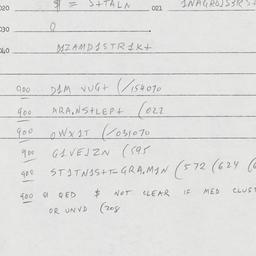 020 $ = S+TALN 021 1NAGROJS3RS+
030 0
040 M1ZAMD1STR1K+
900 D1M VUG+ (/154070
900 ARA,NS+LEP+ (022
900 OWX1T (/031070
900 G1VEJZN (595
900 ST1TN1S+T=GRA,M1N (572 (624 (6
900 G1 QED $ NOT CLEAR IF MED CLUS
OR UNVD (708